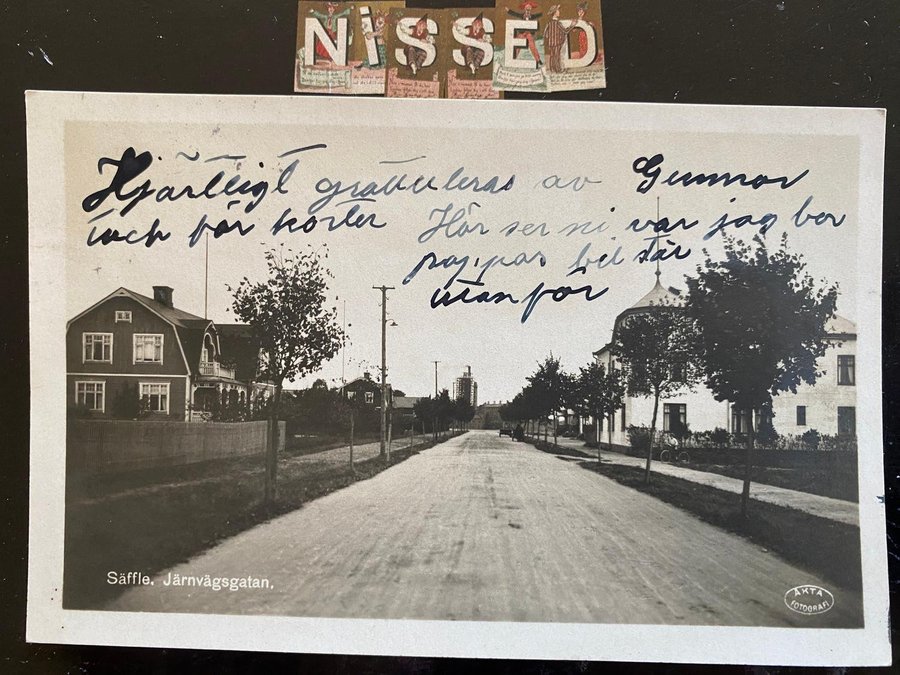 NiSSED
Hjärtligt gratuleras av Gunnar
tack för kortet Här ser ni var jag bor
pappas bil står
utanför
Säffle. Järnvägsgatan.
ÄKTA
FOTOGRAFI